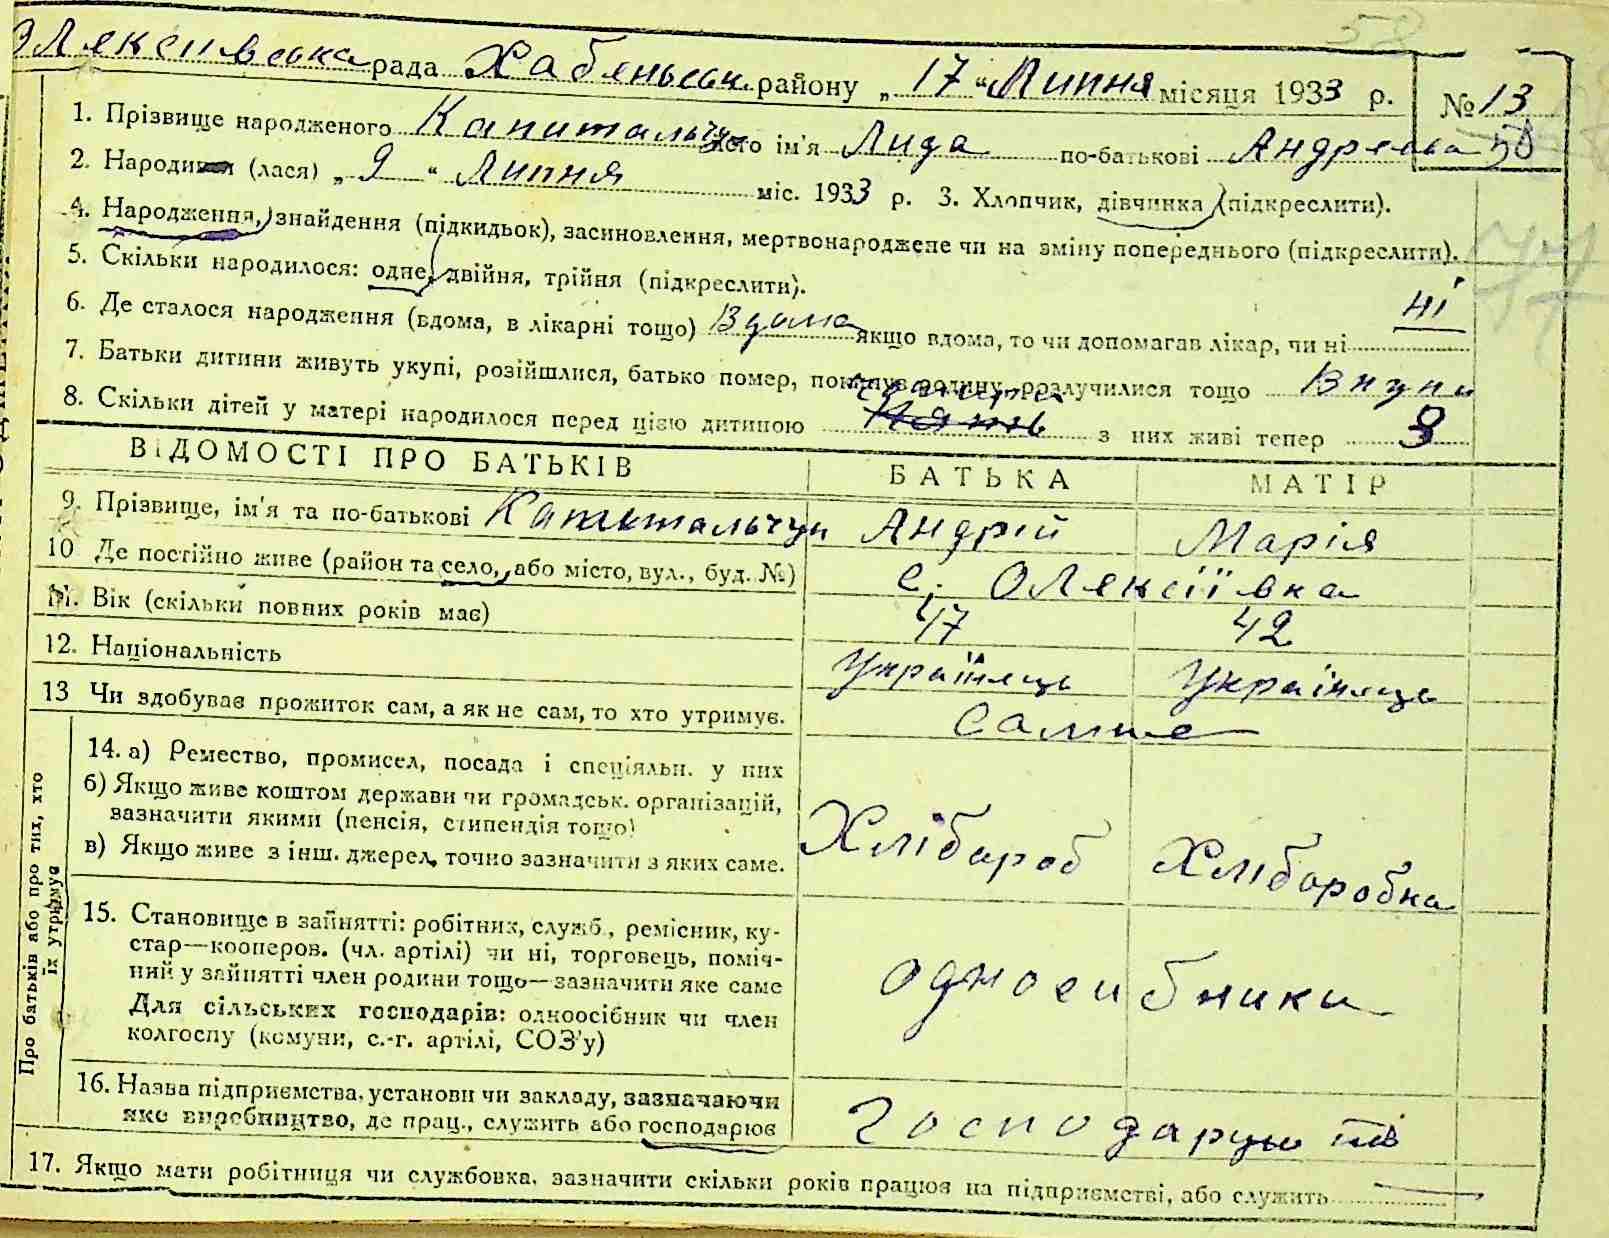 58
Олексіївська рада Хабенськ. району „17“ Липня місяця 1933 р. № 13
1. Прізвище народженого Капитальчук його ім'я Лида по-батькові Андреева 58
2. Народився (лася) „9“ Липня міс. 1933 р. 3. Хлопчик, дівчинка (підкреслити).
4. Народження, знайдення (підкидьок), засиновлення, мертвонароджене чи на зміну попереднього (підкреслити).
5. Скільки народилося: одне, двійня, трійня (підкреслити).
6. Де сталося народження (вдома, в лікарні тощо) Вдома якщо вдома, то чи допомагав лікар, чи ні ні
7. Батьки дитини живуть укупі, розійшлися, батько помер, покинув родину, розлучилися тощо Вкупи
8. Скільки дітей у матері народилося перед цією дитиною з них живі тепер 3
ВІДОМОСТІ ПРО БАТЬКІВ БАТЬКА МАТІР
9. Прізвище, ім'я та по-батькові Капитальчук Андрій Марія
10 Де постійно живе (район та село, або місто, вул., буд. №) с. Олексіївка
11. Вік (скільки повних років має) 47 42
12. Національність Українець Українець
13 Чи здобуває прожиток сам, а як не сам, то хто утримує. Самие
Про батьків або про тих, хто їх утримує
14. а) Ремество, промисел, посада і спеціяльн. у них
б) Якщо живе коштом держави чи громадськ. організацій,
зазначити якими (пенсія, стипендія тощо)
в) Якщо живе з інш. джерел, точно зазначити з яких саме. Хлібороб Хліборобка
15. Становище в зайнятті: робітник, служб., ремісник, ку-
стар—кооперов. (чл. артілі) чи ні, торговець, поміч-
ний у зайнятті член родини тощо—зазначити яке саме
Для сільських господарів: одноосібник чи член
колгоспу (комуни, с.-г. артілі, СОЗ'у) односибники
16. Назва підприємства, установи чи закладу, зазначаючи
яке виробництво, де прац., служить або господарює
17. Якщо мати робітниця чи службовка, зазначити скільки років працює на підприємстві, або служить —